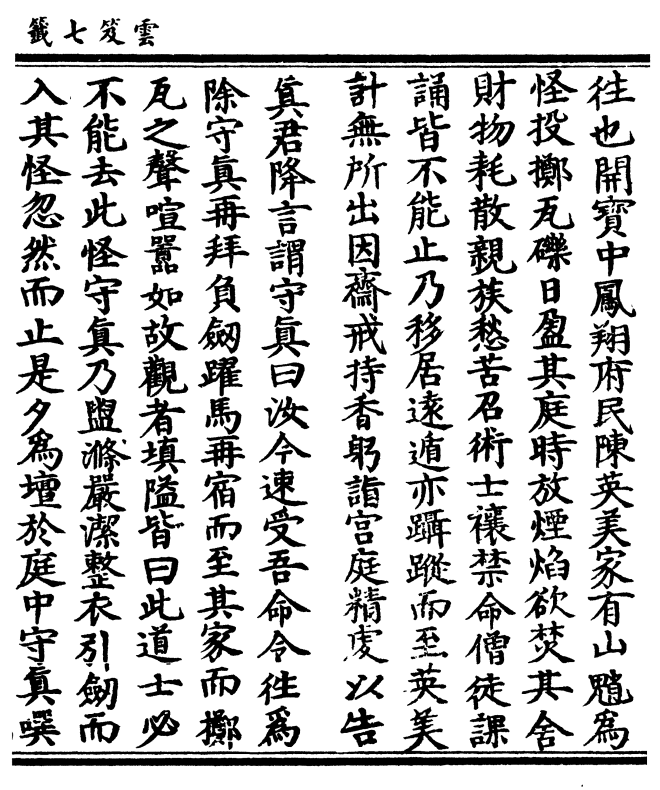 雲笈七籤
往也開寶中鳳翔府民陳英美家有山魈爲
怪投擲瓦礫日盈其庭時放煙焰欲焚其舍
財物耗散親族愁苦召術士禳禁命僧徒課
誦皆不能止乃移居遠遁亦躡蹤而至英美
計無所出因齋戒持香躬詣宫庭精䖍以告
真君降言謂守真曰汝今速受吾命令往爲
除守真再拜負劒躍馬再宿而至其家而擲
瓦之聲喧嚣如故觀者填隘皆曰此道士必
不能去此怪守真乃盥滌嚴潔整衣引劒而
入其怪忽然而止是夕爲壇於庭中守真噀